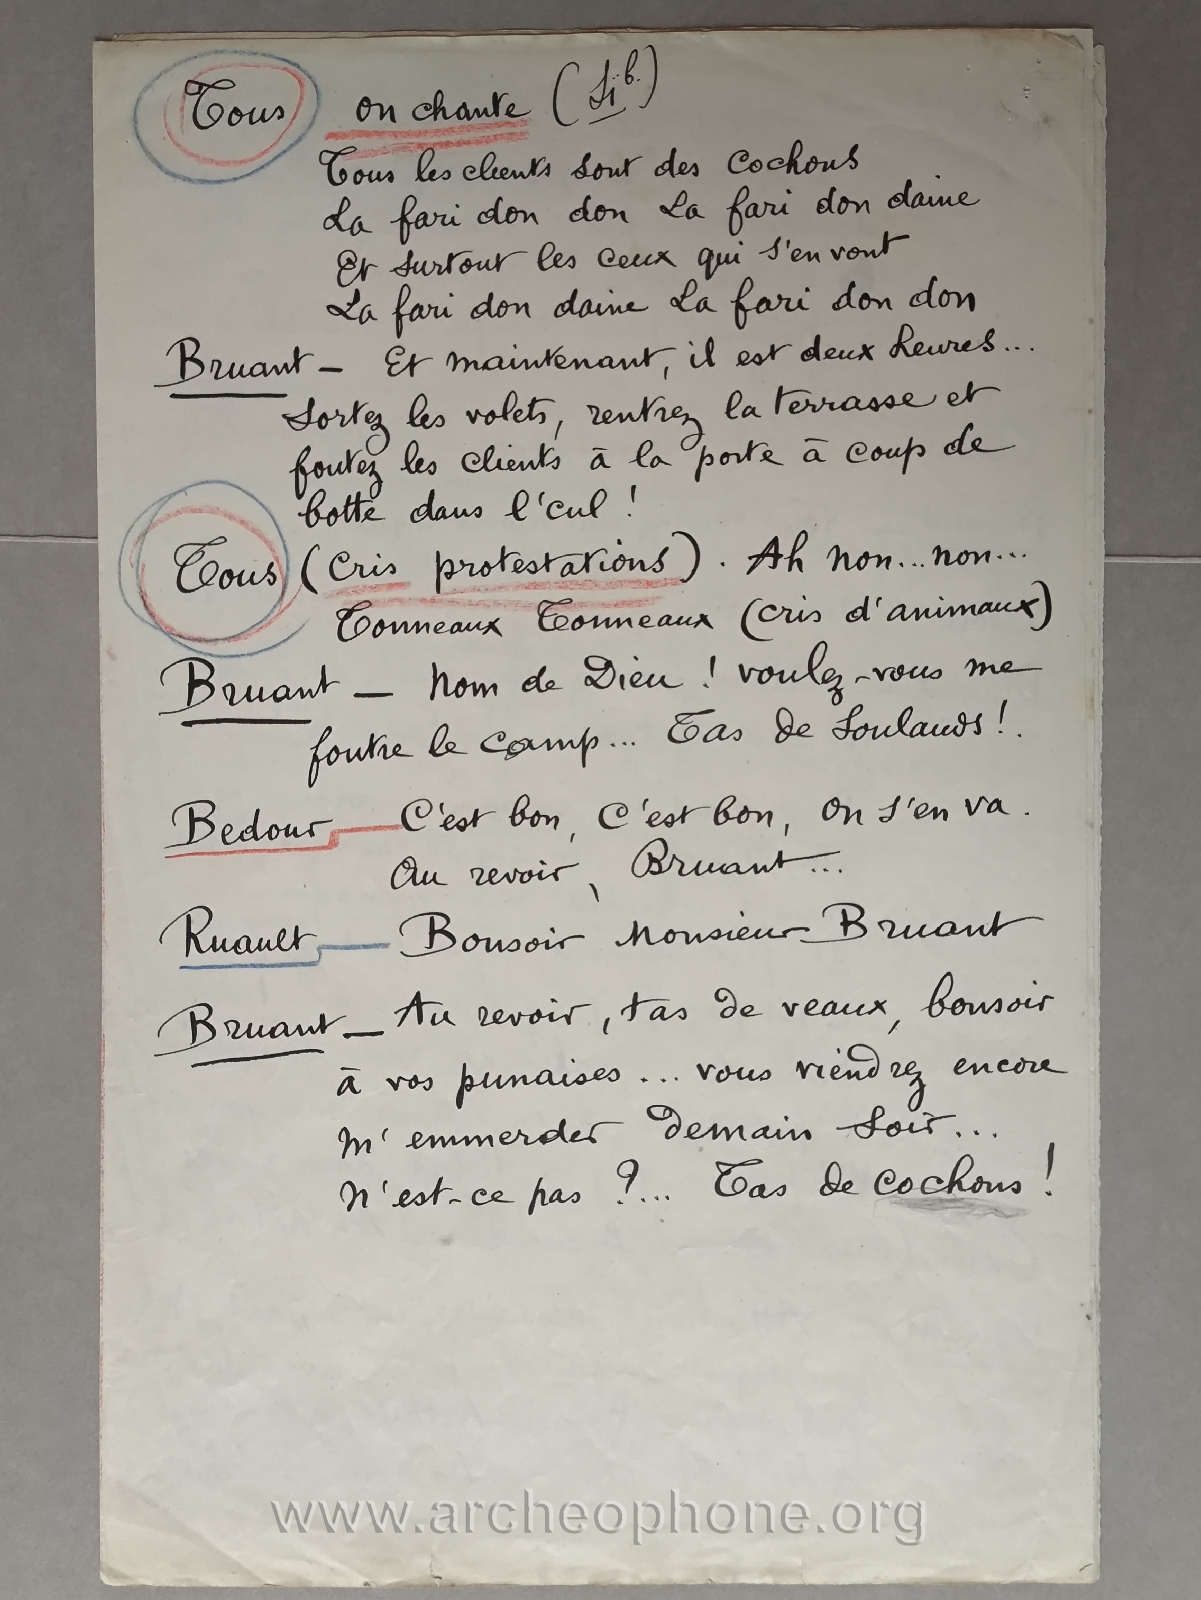 Tous on chante (Si b.)
Tous les clients sont des cochons
La fari don don La fari don daine
Et surtout les ceux qui s'en vont
La fari don daine La fari don don
Bruant - Et maintenant, il est deux heures...
Sortez les volets, rentrez la terrasse et
foutez les clients à la porte à coup de
botte dans l'cul !
Tous (Cris protestations). Ah non... non...
Tonneaux Tonneaux (cris d'animaux)
Bruant - Nom de Dieu ! voulez-vous me
foutre le camp... Tas de Soulauds !.
Bedour - C'est bon, C'est bon, on s'en va.
Au revoir, Bruant...
Ruault - Bonsoir Monsieur Bruant
Bruant - Au revoir, tas de veaux, bonsoir
à vos punaises... vous viendrez encore
m'emmerder demain soir...
N'est-ce pas ?... Tas de cochons !
www.archeophone.org